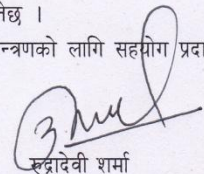 नेछ ।
न्त्रणको लागि सहयोग प्रदा
रुद्रादेवी शर्मा